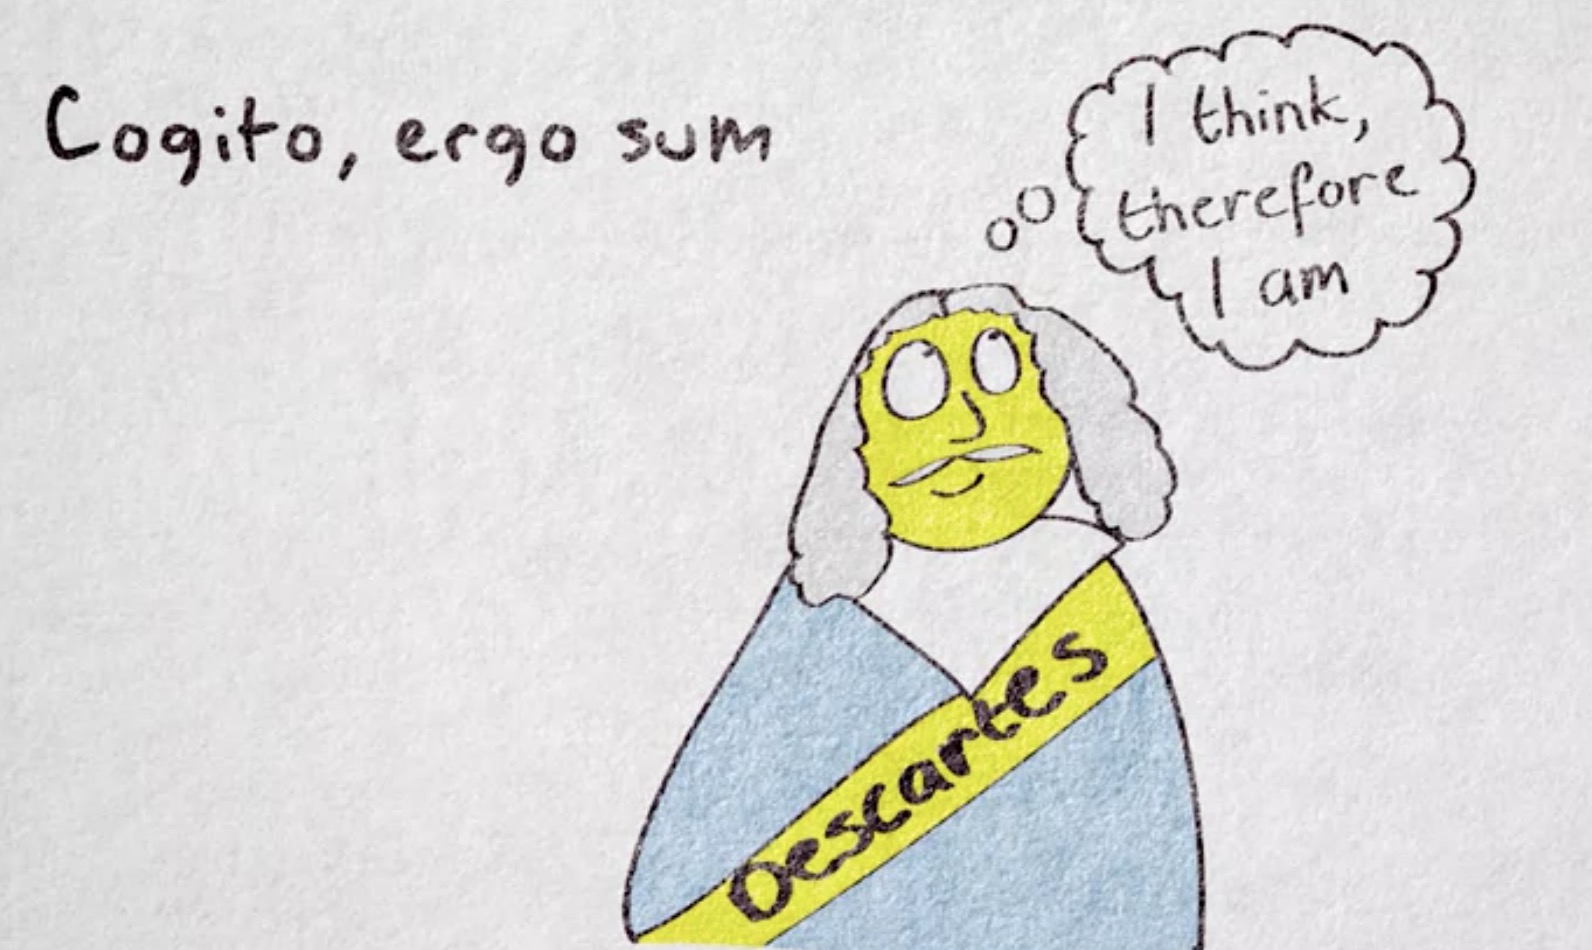 Cogito, ergo sum
I think,
therefore
I am
Descartes